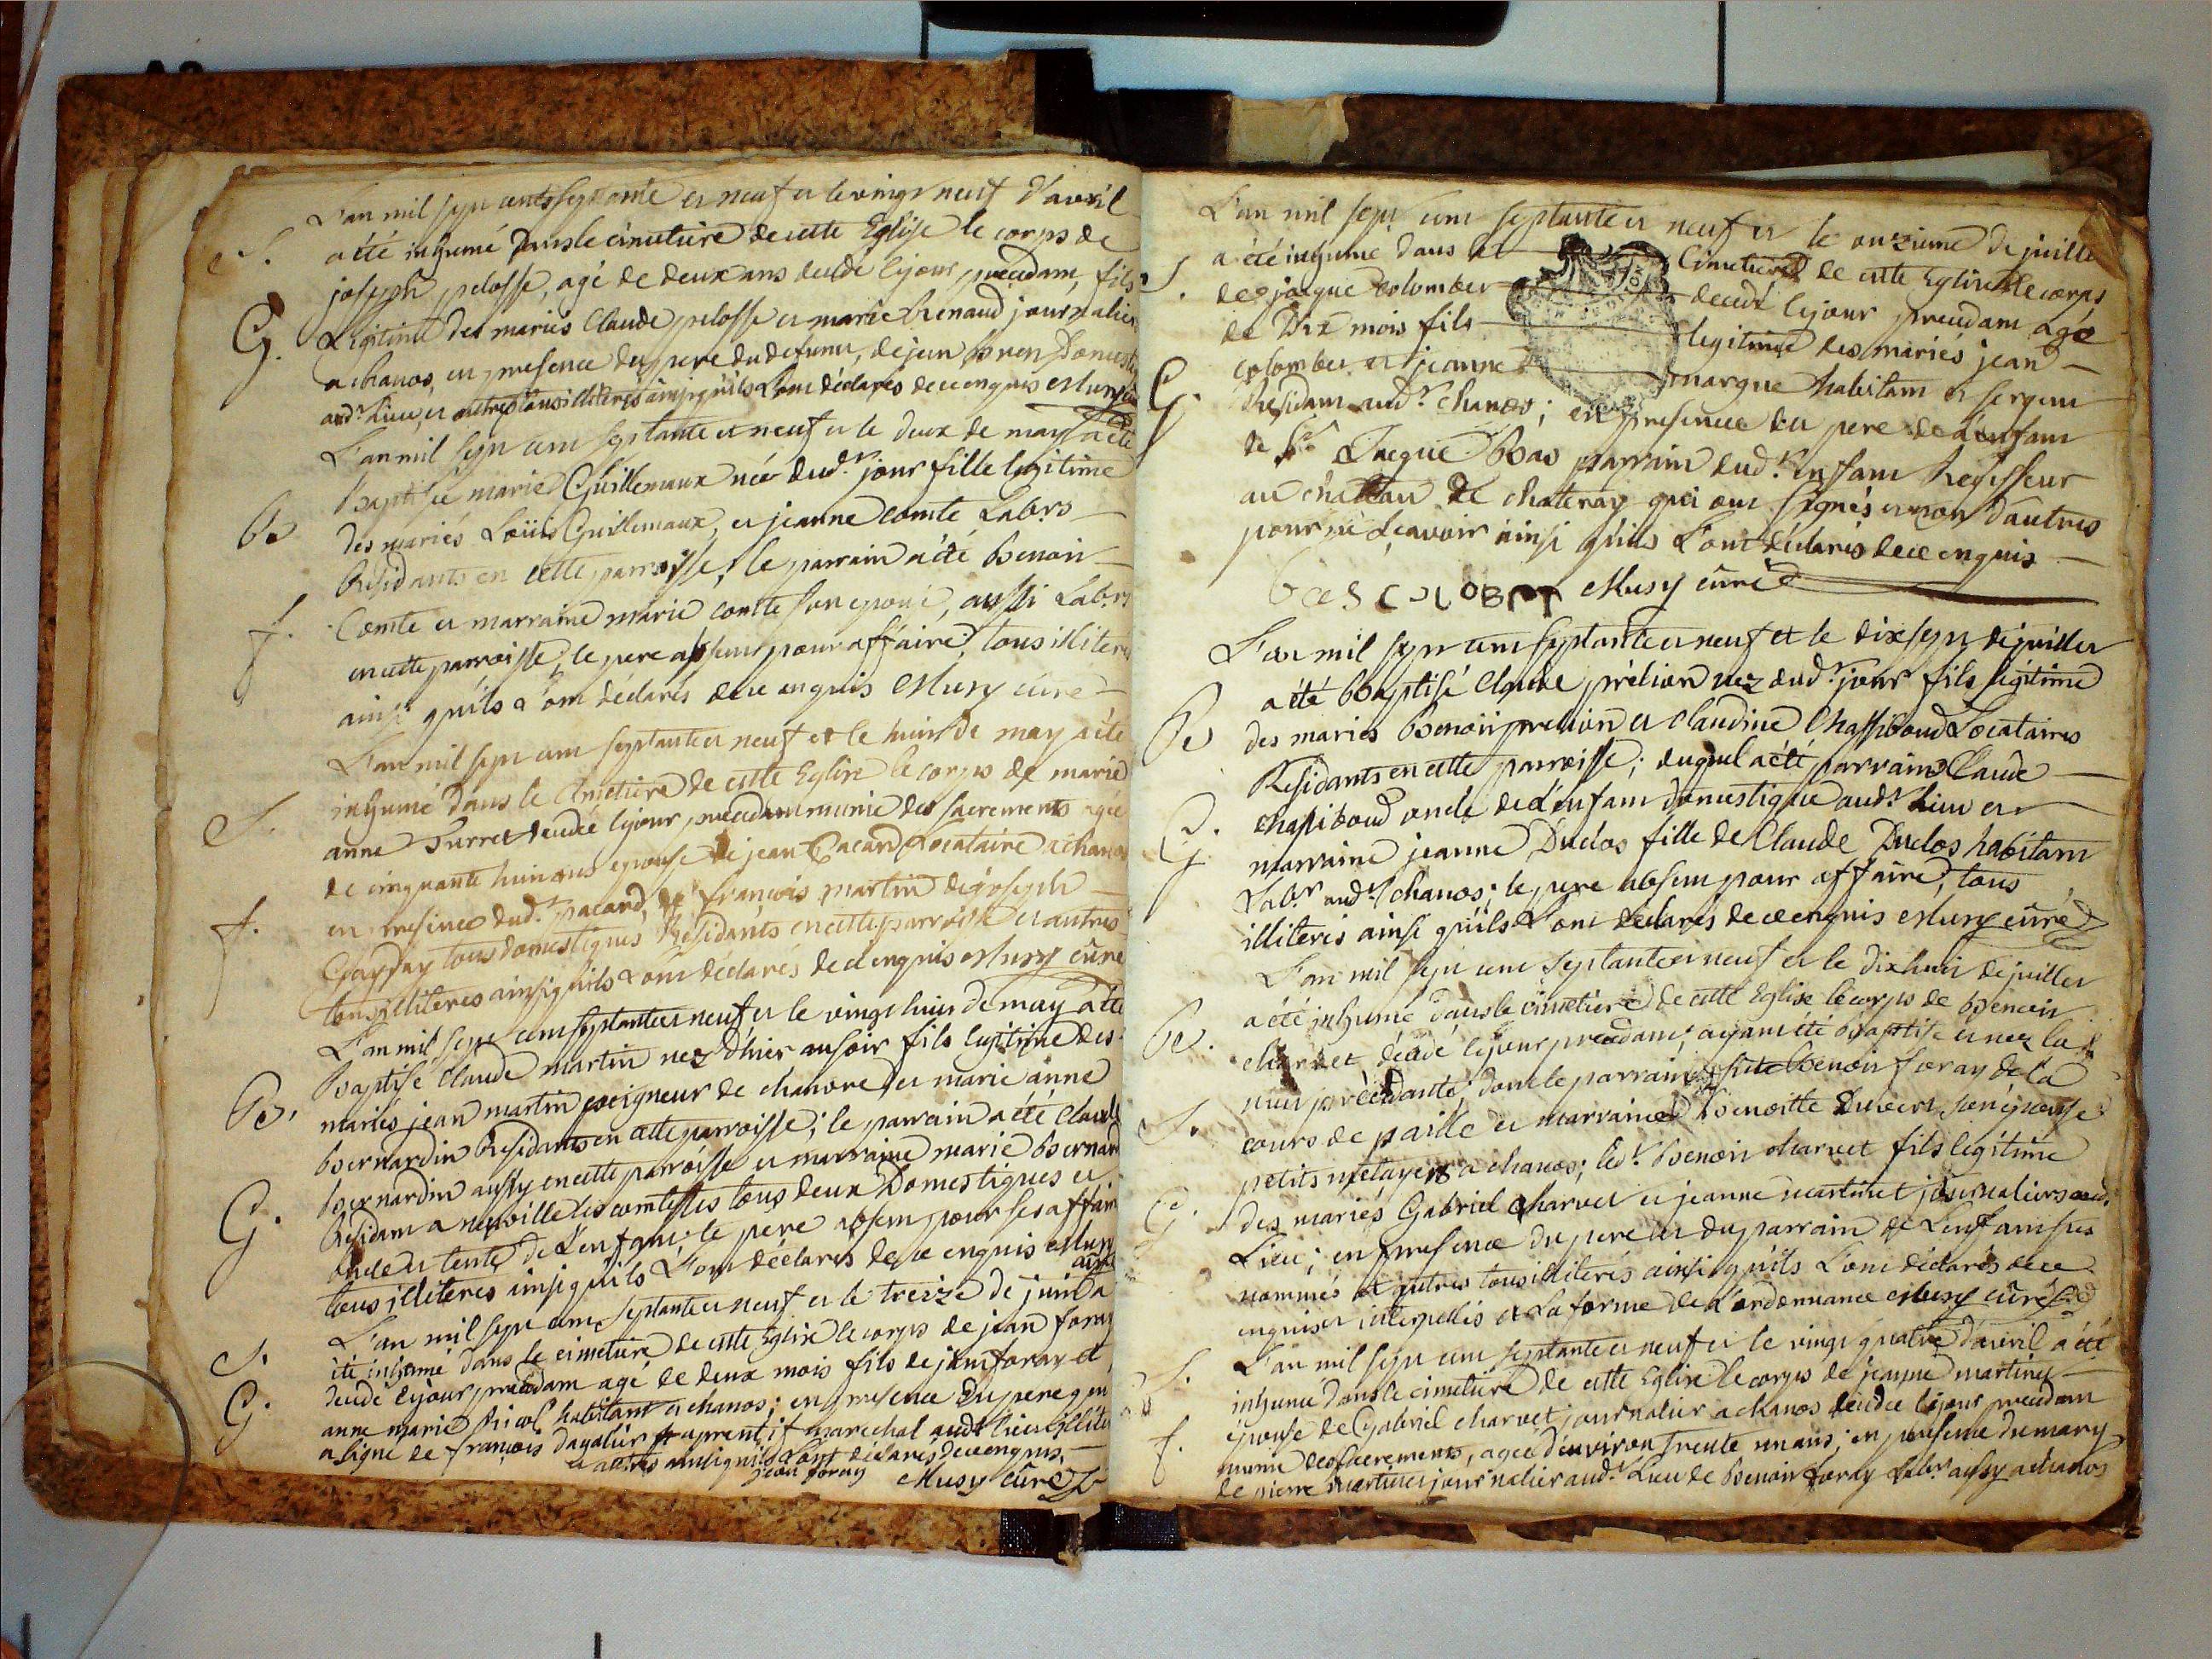 L'an mil sept cents septante et neuf et le vingt neuf d'avril
S. a été inhumé dans le cimetiere de cette Eglise le corps de
joseph pelosse, agé de deux ans decedé le jour precedant, fils
G. Legitime des mariés Claude pelosse et marie Renaud journaliers
a chanos, en presence du pere du defunt, de jean
audt. Lieu, et autres tous illiterés ainsi qu'ils L'ont déclarés de ce enquis Musy
L'an mil sept cent septante et neuf et le deux de may a été
Baptisée marie Guillemaux née dudt. jour fille legitime
B. des mariés Loüis Guillemaux, et jeanne comte Labrs.
Residants en cette parroisse; le parrain a été Benoit
f. Comte et marraine marie comte son epouse, aussi Labrs.
en cette parroisse, le pere absent pour affaire, tous illiterés
ainsi qu'ils L'ont déclarés de ce enquis Musy curé
L'an mil sept cent septante et neuf et le huit de may a été
S. inhumé dans le Cimetiere de cette Eglise le corps de marie
anne Furret decedée le jour precedant munie des sacrements agée
de cinquante huit ans epouse de jean Pacard Locataire a chanos
f. en presence dudt. pacard, de françois martin de joseph
Gayday tous domestiques Residants en cette parroisse et autres
tous illiterés ainsi qu'ils L'ont déclarés de ce enquis Musy curé
L'an mil sept cent septante et neuf et le vingt huit de may a été
Baptisé Claude martin nez d'hier au soir fils legitime des
B. mariés jean martin peigneur de chanvre et marie anne
bernardin Residants en cette parroisse; le parrain a été claude
bernardin aussy en cette parroisse et marraine marie Bernardin
G. Residant a neuville les comtesses tous deux Domestiques et
oncle et tente de L'enfant; le pere absent pour ses affaires
tous illiterés ainsi qu'ils L'ont déclarés de ce enquis Musy
curé
L'an mil sept cent septante et neuf et le treize de juin a
S. été inhumé dans le cimetiere de cette Eglise le corps de jean foray
decedé le jour precedant agé de deux mois fils de jean foray et
G. anne marie habitant a chanos; en presence du pere qui
a signé de françois Dagalier aprentif marechal audt. lieu illiterés
et autres ainsi qu'ils L'ont déclarés de ce enquis.
jean foray Musy curé
L'an mil sept cent septante et neuf et le onzieme de juillet
a été inhumé dans le Cimetiere de cette Eglise le corps
S. de jacque colomber decedé le jour precedant agé
de Dix mois fils legitime des mariés jean
colomber et jeanne marque habitant et sergent
G. Residant audt. chanos; en presence du pere de l'enfant
de Sr. Jacque Bas parrain dudt. enfant Regisseur
au chateau de chateray qui ont signés et non d'autres
pour ne sçavoir ainsi qu'ils L'ont déclarés de ce enquis
bas COLOBET Musy curé
L'an mil sept cent septante et neuf et le dix sept de juillet
a été Baptisé Claude prélion nez dudt. jour fils légitime
B. des mariés Benoit prelion et Claudine Chassiboud Locataires
Residants en cette parroisse; duquel a été parrain Claude
chassiboud oncle de L'enfant domestique audt. Lieu et
G. marraine jeanne Duclos fille de Claude Duclos habitant
Labr. audt. chanos; le pere absent pour affaire, tous
illiterés ainsi qu'ils L'ont déclarés de ce enquis Musy curé
L'an mil sept cent septante et neuf et le dix huit de juillet
a été inhumé dans le cimetiere de cette Eglise le corps de Benoit
B. charvet, decedé le jour precedant, ayant été Baptisé et nez la
nuit précédante, dont le parrain Benoit foray de la
S. cours de paille et marraine Benoitte son epouse
petits metayers a chanos; ledt. Benoit charvet fils légitime
G. des mariés Gabriel charvet et jeanne martinet journaliers audt.
Lieu; en presence du pere et du parrain de L'enfant sus
nommés et autres tous illiterés ainsi qu'ils L'ont déclarés de ce
enquis et interpellés et La forme de L'ordonnance Musy curé
L'an mil sept cent septante et neuf et le vingt quatre d'avril a été
S. inhumé dans le cimetiere de cette Eglise le corps de jeanne martinet
épouse de Gabriel charvet journalier a chanos decedée le jour precedant
f. munie des sacrements, agée d'environ trente un ans; en presence du mary
de pierre martinet journalier audt. Lieu de Benoit foray Labr. aussy a chanos